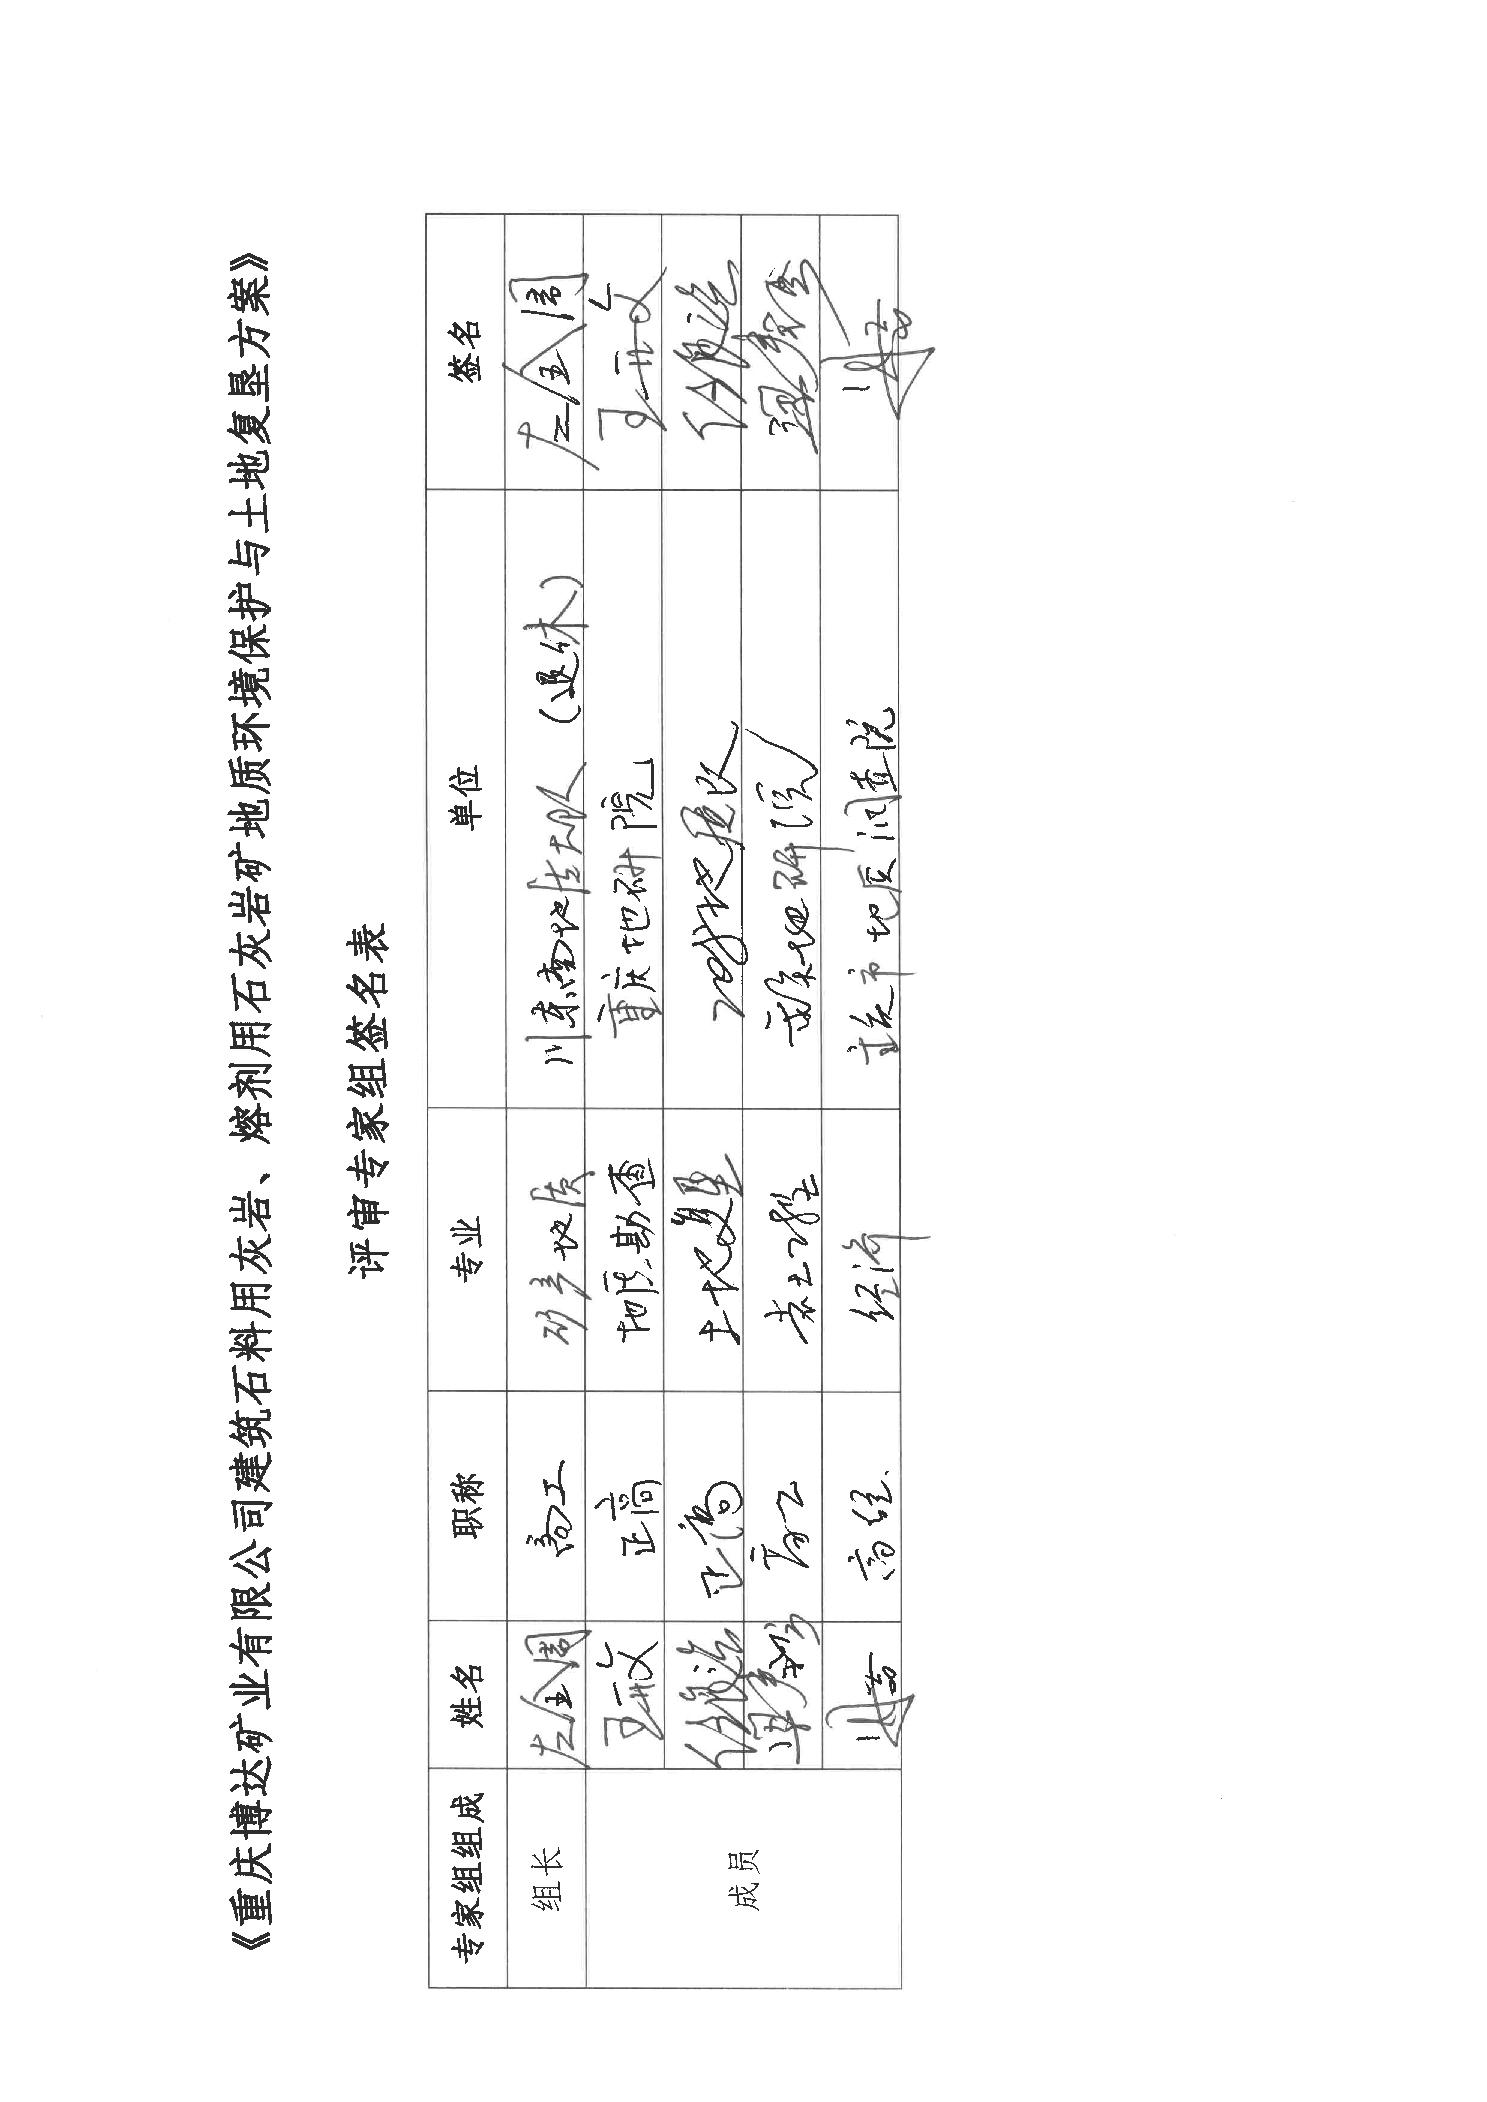 《重庆博达矿业有限公司建筑石料用灰岩、熔剂用石灰岩矿地质环境保护与土地复垦方案》
评审专家组签名表
专家组组成 姓名 职称 专业 单位 签名
组长 左全周 高工 矿产地质 川东南地质大队（退休） 左全周
成员 正高 地质勘查 重庆地研院
正高 土地复垦 208地质队
高工 岩土工程 重庆地研院
高经 经济 重庆市地质调查院